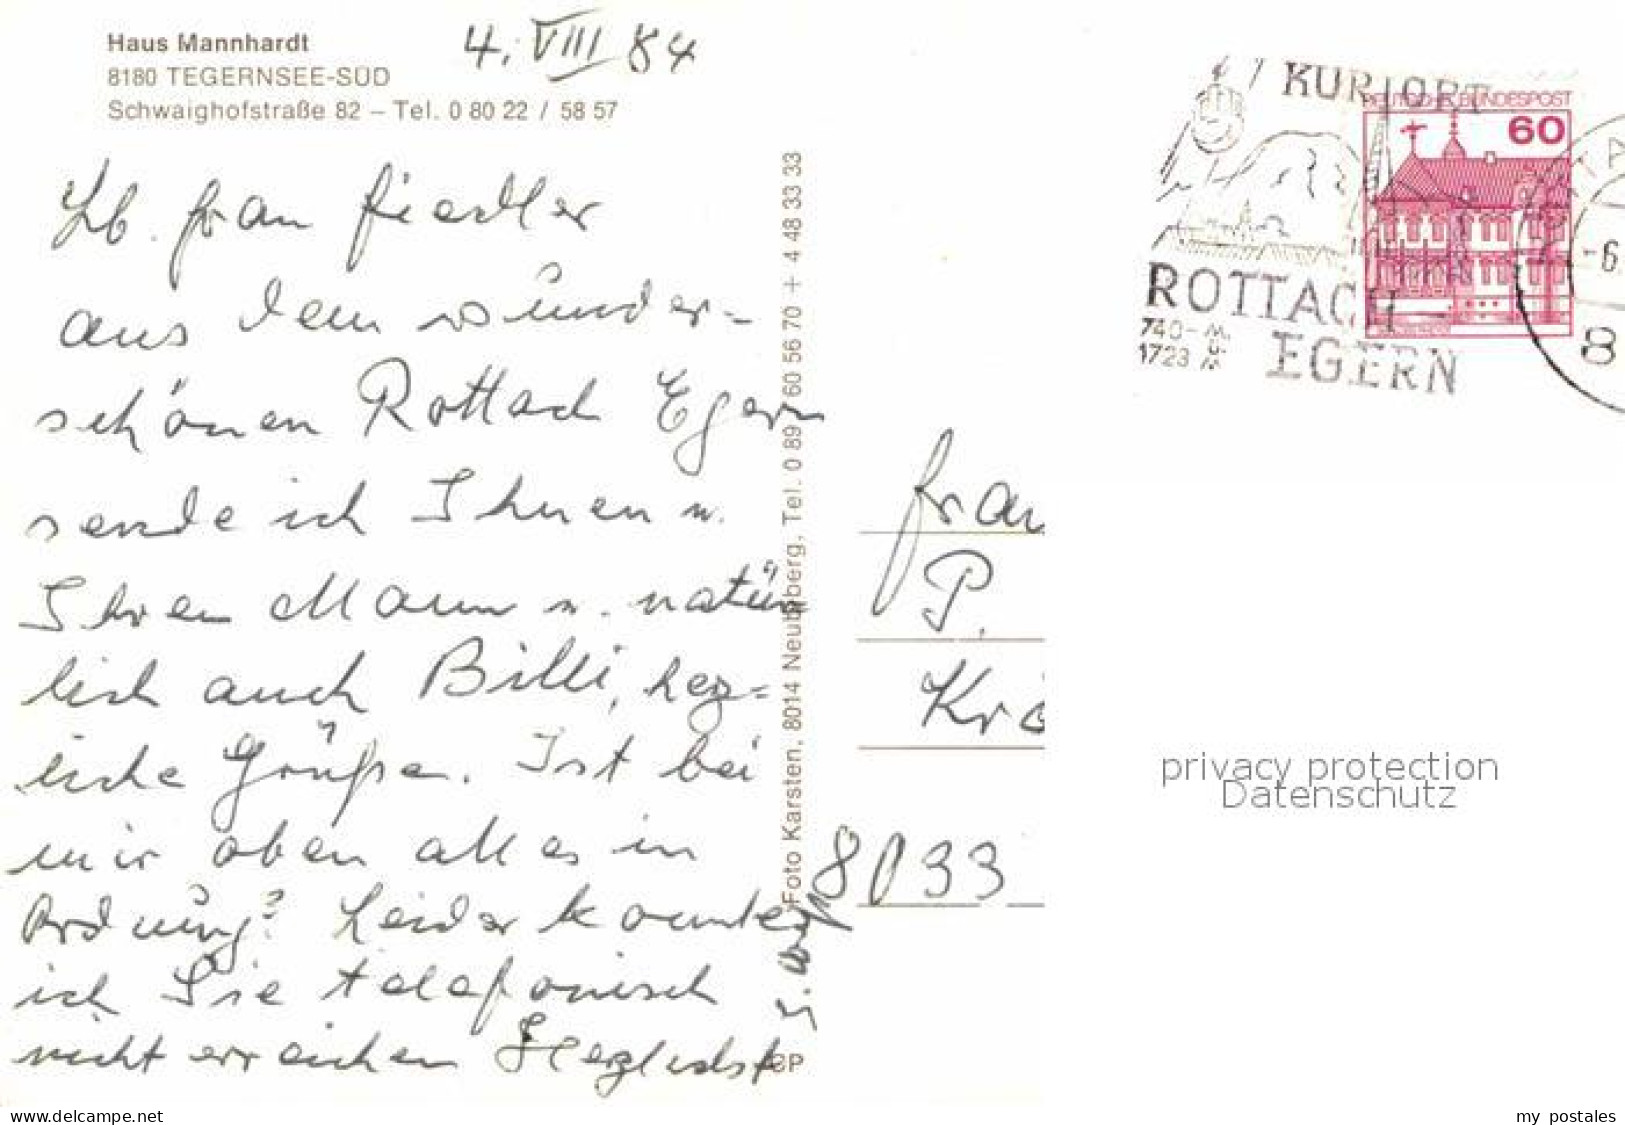 Haus Mannhardt
8180 TEGERNSEE-SÜD
Schwaighofstraße 82 – Tel. 0 80 22 / 58 57
4. VIII 84
Lb. Frau Fiedler
aus dem wunder-
schönen Rottach Egern
sende ich Ihnen u.
Ihren Mann u. natür
lich auch Billi, herz=
liche Grüße. Ist bei
mir oben alles in
Ordnung? Leider konnte
ich Sie telefonisch
nicht erreichen Herzlichst
Foto Karsten, 8014 Neubiberg, Tel. 0 89 / 60 56 70 + 4 48 33 33
KURORT
ROTTACH-
EGERN
740-
1723 m
DEUTSCHE BUNDESPOST
60
-6.
8
Frau
P.
Krä
8033
privacy protection
Datenschutz
delcampe.net
my_postales